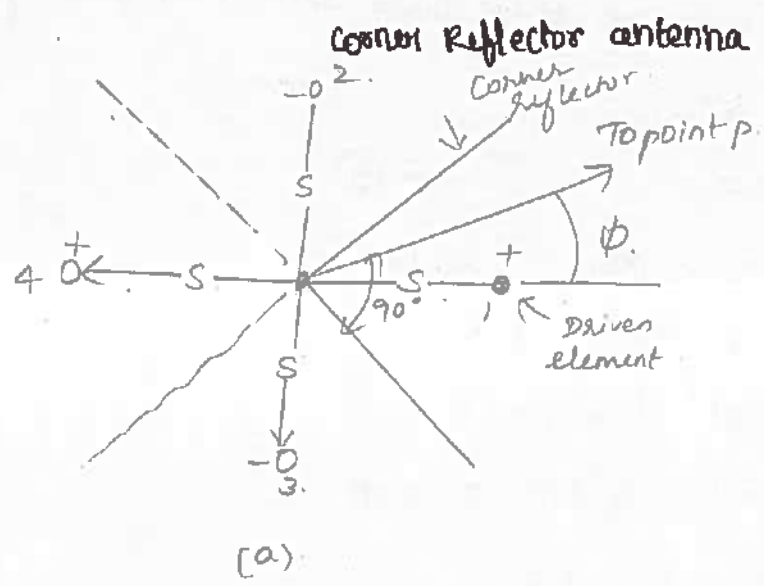 Corner Reflector antenna
-0 2.
Corner
reflector
To point p.
S
φ.
+
4 0
S
S
+
90°
1
Driven
element
S
-0
3.
(a)